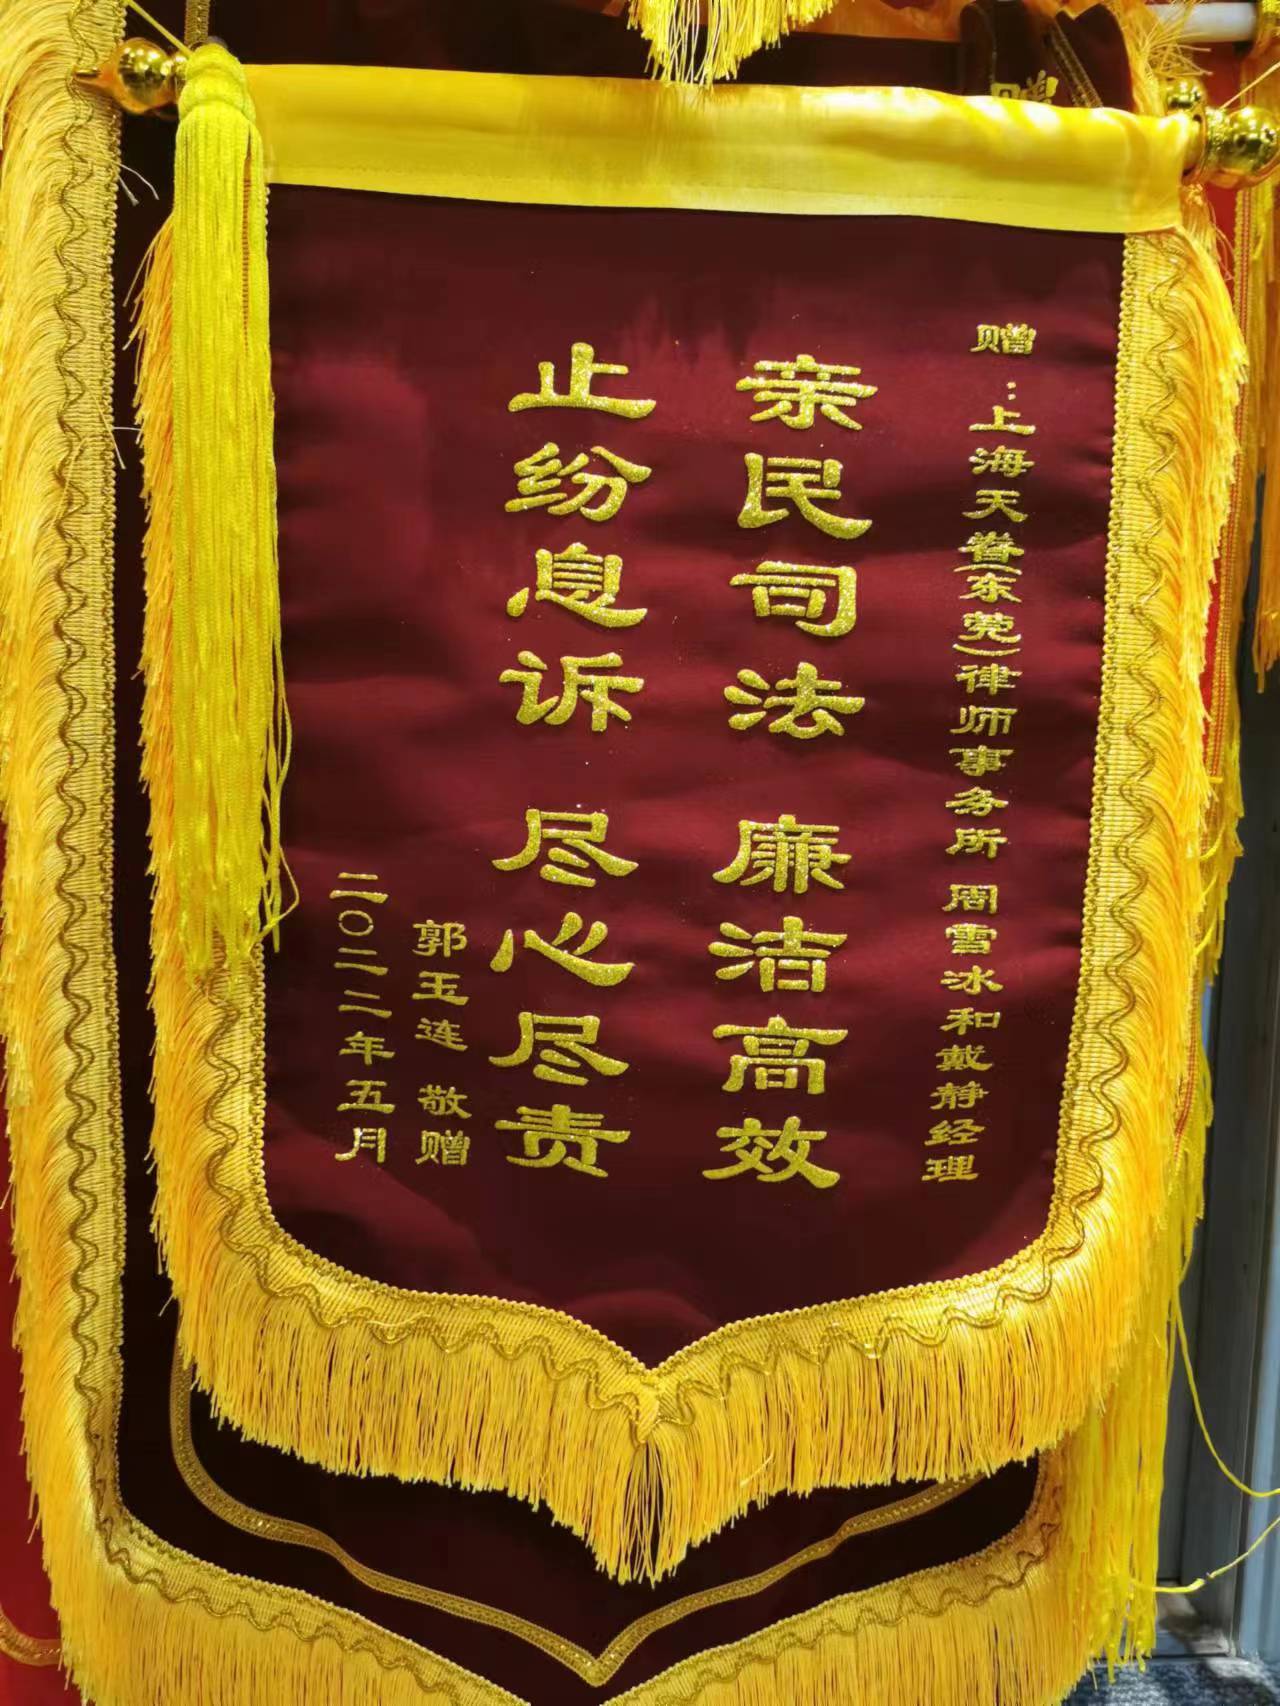 赠：上海天眷(东莞)律师事务所 周雪冰和戴静经理
亲民司法 廉洁高效
止纷息诉 尽心尽责
郭玉连 敬赠
二〇二二年五月
赠